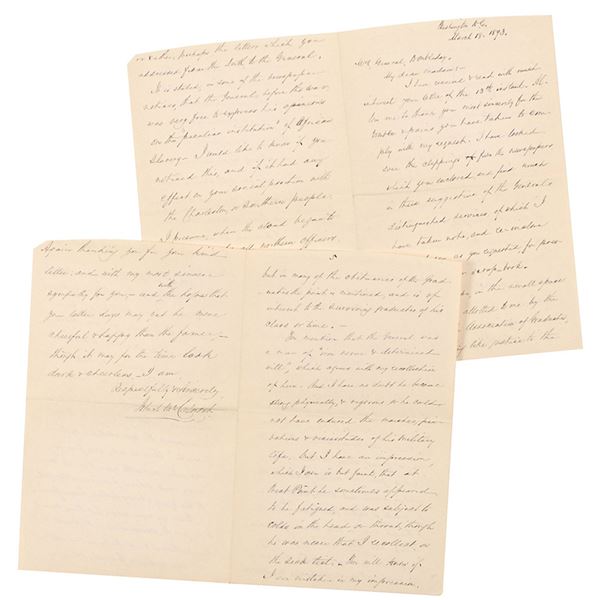 Washington D.C.
March 18. 1893.
Mrs General, Doubleday.
My dear madam:-
I have received & read with much
interest your letter of the 13th instant. Al-
low me to thank you most sincerely for the
trouble & pains you have taken to com-
ply with my request. I have looked
over the clippings from the newspapers
which you enclosed and find much
in them suggestive of the General's
distinguished services of which I
have taken note, and
as you requested, for
scrapbook.
the small space
allotted me by the
Association of Graduates
like justice to the
or other, perhaps the letters which you
addressed from the South to the General.
It is stated, in some of the newspaper
notices, that the General, before the war,
was very free to express his opinions
on the "peculiar institution" of African
Slavery - I would like to know if you
noticed this, and if it had any
effect on your social position with
the Charleston or Southern people.
I presume, when the cloud began to
northern officers
Again thanking you for your kind
letter, and with my most sincere
sympathy for you,- and with the hope that
your later days may not be more
cheerful & happy than the former,-
though it may for the time look
dark & cheerless - I am
Respectfully & Sincerely
5
but in many of the obituaries of the Grad-
uates the point is mentioned, and is of
interest to the surviving graduates of his
class or time.-
You mention that the General was
a man of iron nerve & determined
will", which agrees with my recollection
of him. And I have no doubt he became
strong physically, & vigorous or he could
not have endured the marches, pri-
vations & vicissitudes of his military
life, but I have an impression,
which I own is but faint, that at
West Point he sometimes appeared
to be fatigued, and was subject to
colds in the head or throat, though
he was never that I recollect, on
the sick list. You will know if
I am mistaken in my impression.